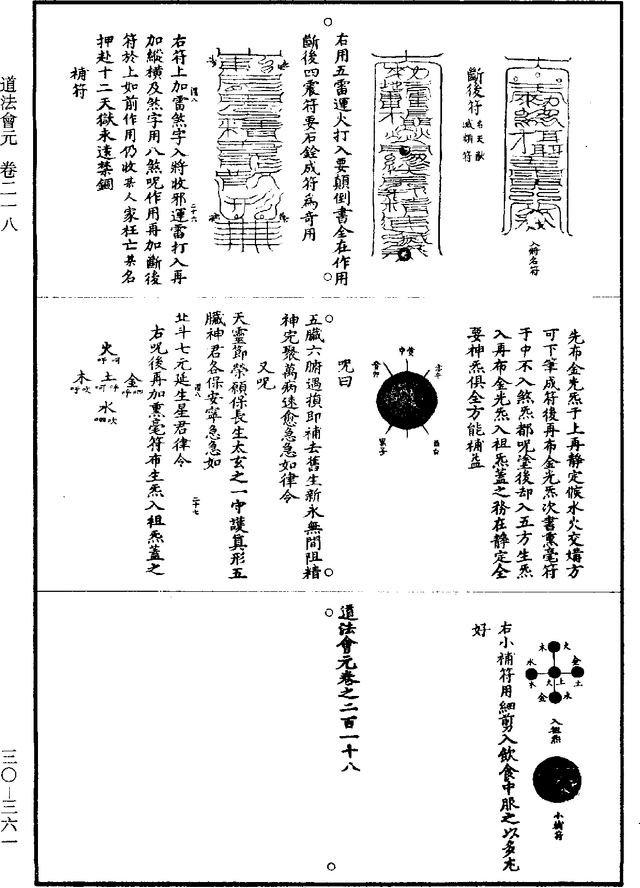 道法會元 卷二一八
三〇—三六一
入將名符
斷後符 右天獄滅禍符
右用五雷運火打入要顛倒書全在作用
斷後四震符要石銓成符為奇用
右符上加雷煞字入將收邪運雷打入再
加縱橫及煞字用八煞咒作用再加斷後
符於上如前作用仍收某人家枉亡某名
押赴十二天獄永遠禁錮
補符
先布金光炁于上再靜定候水火交媾方
可下筆成符後再布金光炁次書熏毫符
于中不入煞炁都咒塗後却入五方生炁
入再布金光炁入祖炁蓋之務在靜定全
要神炁俱全方能補益
咒曰
五臟六腑遇損即補去舊生新永無間阻精
神完聚萬病速愈急急如律令
又咒
天靈節榮願保長生太玄之一守護真形五
臟神君各保安寧急急如
北斗七元延生星君律令
右咒後再加熏毫符布生炁入祖炁蓋之
二十六
二十七
火
木 土 金
水
火
木 金
水 火 土 土
木 金 水
入祖炁
小補符
右小補符用細剪入飲食中服之以多尤
好
道法會元卷之二百一十八